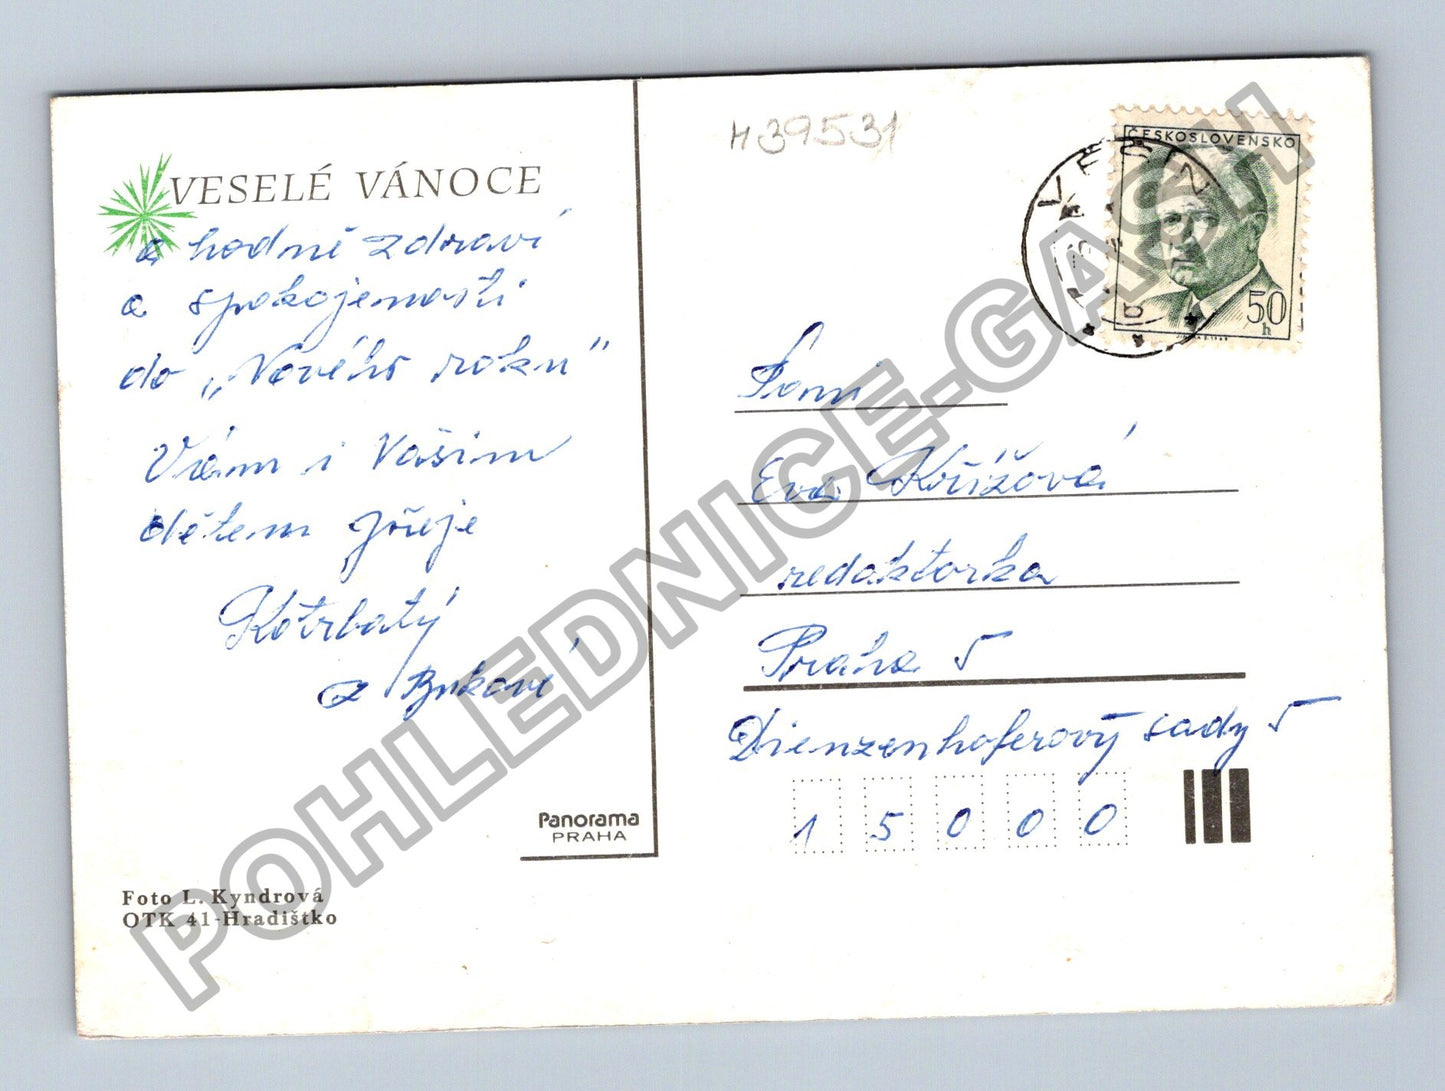 VESELÉ VÁNOCE
a hodně zdraví
a spokojenosti
do „Nového roku"
Vám i Vašim
dětem přeje
Kotrbatý
z Bukové
Panorama
PRAHA
Foto L. Kyndrová
OTK 41-Hradištko
H39531
ČESKOSLOVENSKO
50
h
Paní
Eva Křížová
redaktorka
Praha 5
Dienzenhoferový sady 5
1 5 0 0 0
POHLEDNICE-GASH